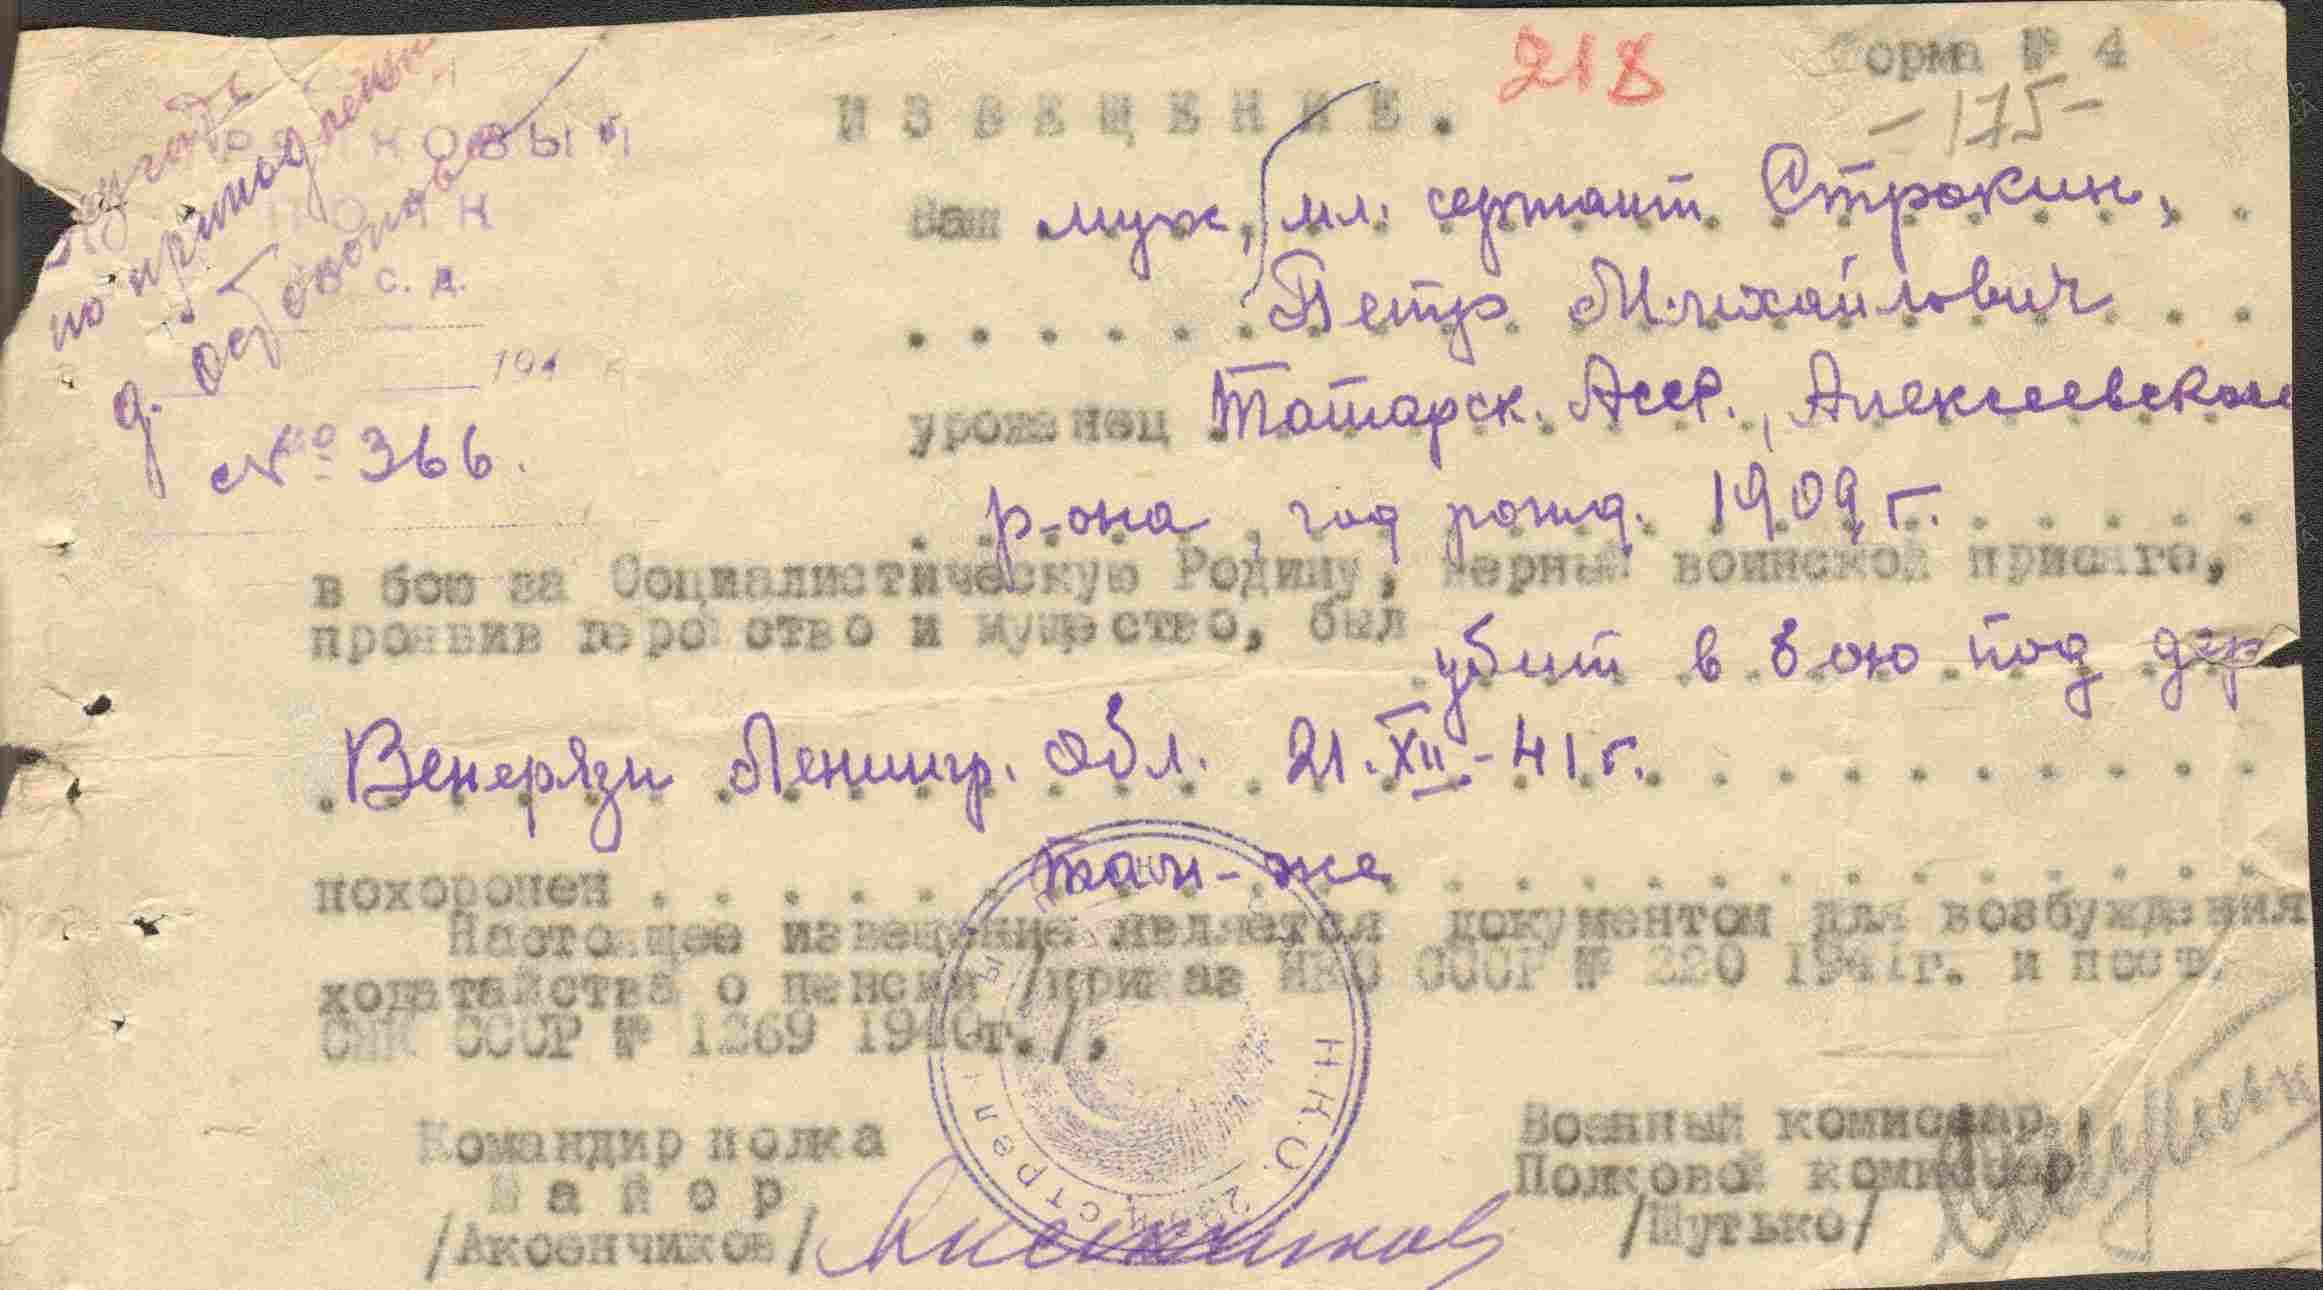 218
Форма № 4
-175-
ИЗВЕЩЕНИЕ.
по
д.
с. д.
194 г
№ 366.
Ваш муж, мл. сержант Строкин,
Петр Михайлович
уроженец Татарск. Асср., Алексеевского
р-она, год рожд. 1909 г.
в бою за Социалистическую Родину, верный воинской присяге,
проявив геройство и мужество, был
убит в бою под дер
Венерязи Ленингр. Обл. 21.XII-41 г.
похоронен там-же
Настоящее извещение является документом для возбуждения
ходатайства о пенсии /приказ НКО СССР № 220 1941г. и пост.
СНК СССР № 1269 1940г./,
Н.К.О.
Командир полка
Майор
/Аксенчиков/
Военный комиссар
Полковой комиссар
/Шутько/